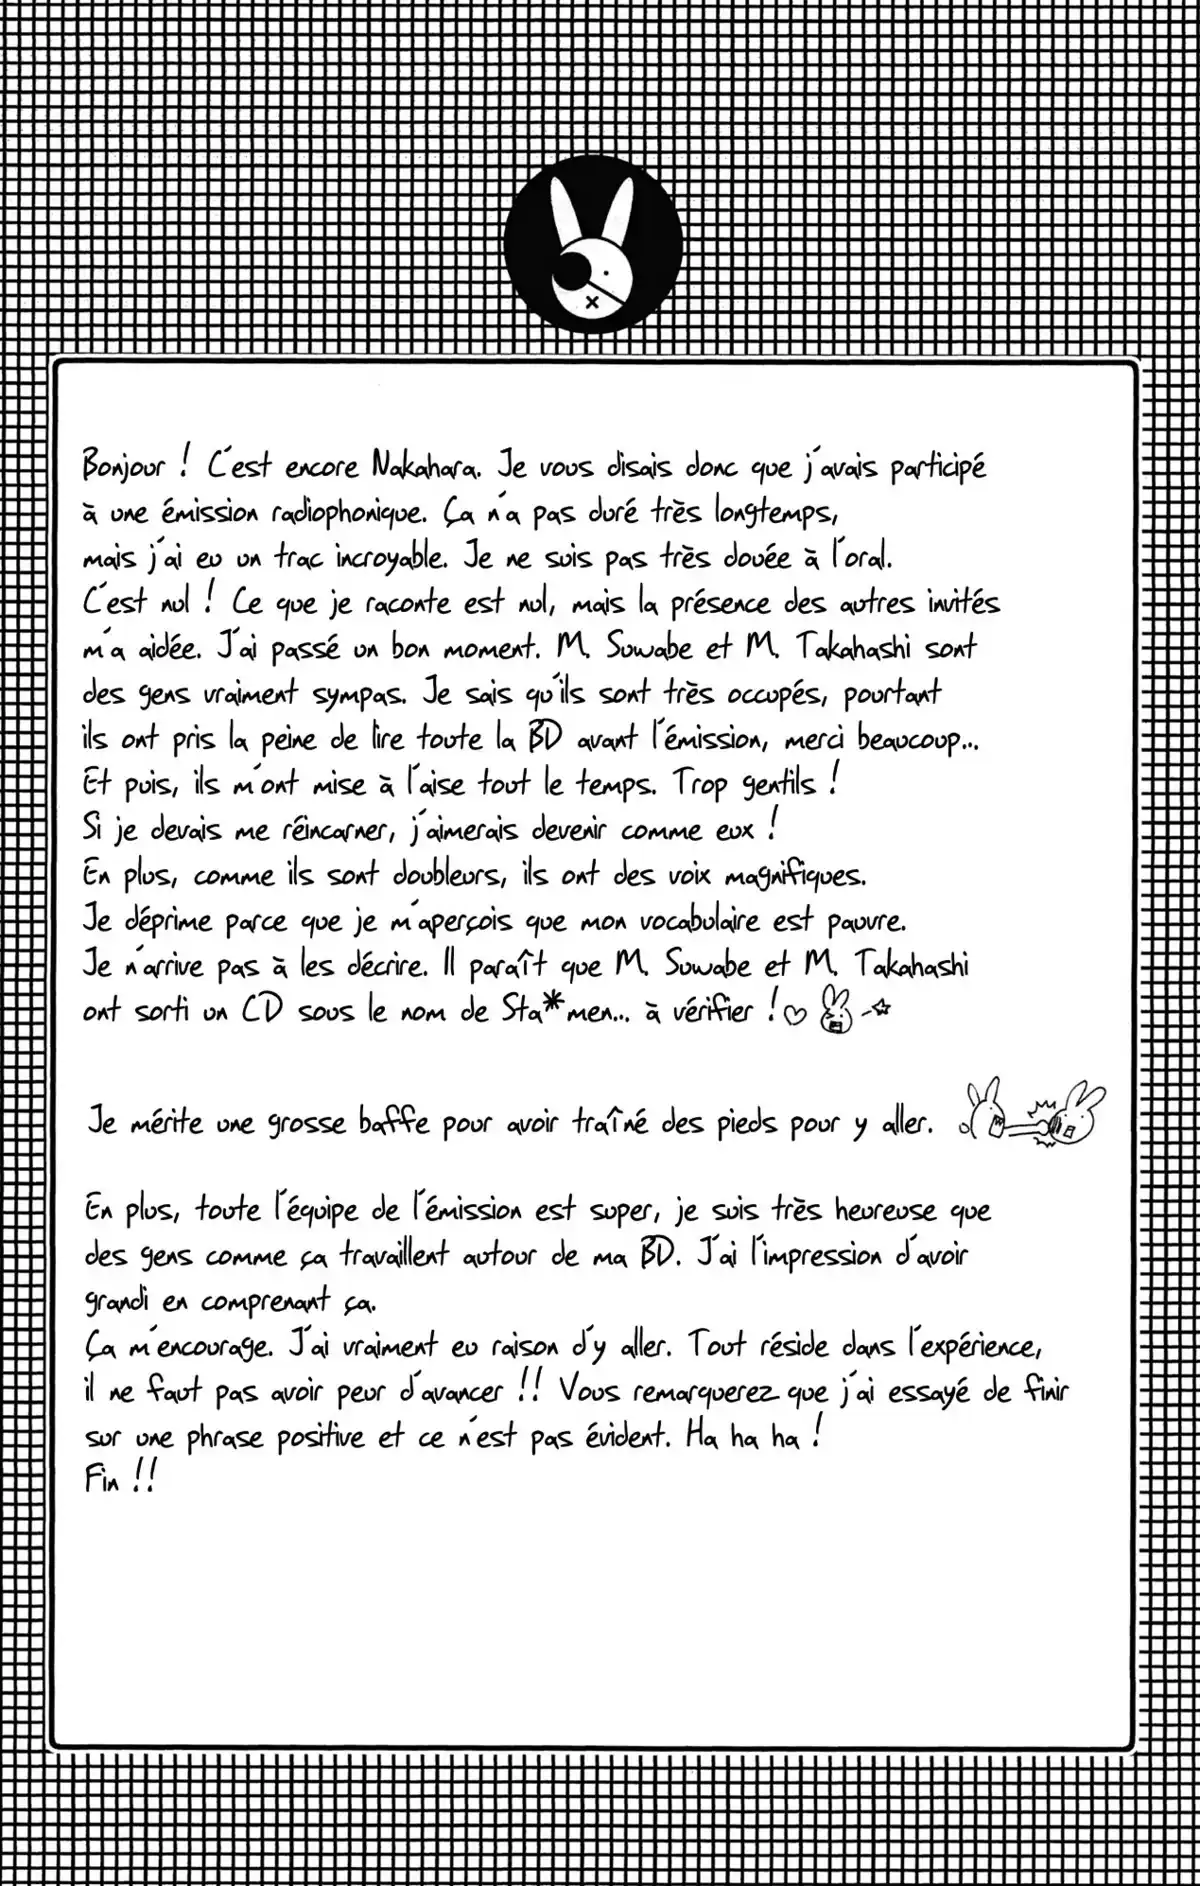 Bonjour ! C'est encore Nakahara. Je vous disais donc que j'avais participé
à une émission radiophonique. Ça n'a pas duré très longtemps,
mais j'ai eu un trac incroyable. Je ne suis pas très douée à l'oral.
C'est nul ! Ce que je raconte est nul, mais la présence des autres invités
m'a aidée. J'ai passé un bon moment. M. Suwabe et M. Takahashi sont
des gens vraiment sympas. Je sais qu'ils sont très occupés, pourtant
ils ont pris la peine de lire toute la BD avant l'émission, merci beaucoup...
Et puis, ils m'ont mise à l'aise tout le temps. Trop gentils !
Si je devais me réincarner, j'aimerais devenir comme eux !
En plus, comme ils sont doubleurs, ils ont des voix magnifiques.
Je déprime parce que je m'aperçois que mon vocabulaire est pauvre.
Je n'arrive pas à les décrire. Il paraît que M. Suwabe et M. Takahashi
ont sorti un CD sous le nom de Sta*men... à vérifier !♡
Je mérite une grosse baffe pour avoir traîné des pieds pour y aller.
En plus, toute l'équipe de l'émission est super, je suis très heureuse que
des gens comme ça travaillent autour de ma BD. J'ai l'impression d'avoir
grandi en comprenant ça.
Ça m'encourage. J'ai vraiment eu raison d'y aller. Tout réside dans l'expérience,
il ne faut pas avoir peur d'avancer !! Vous remarquerez que j'ai essayé de finir
sur une phrase positive et ce n'est pas évident. Ha ha ha !
Fin !!